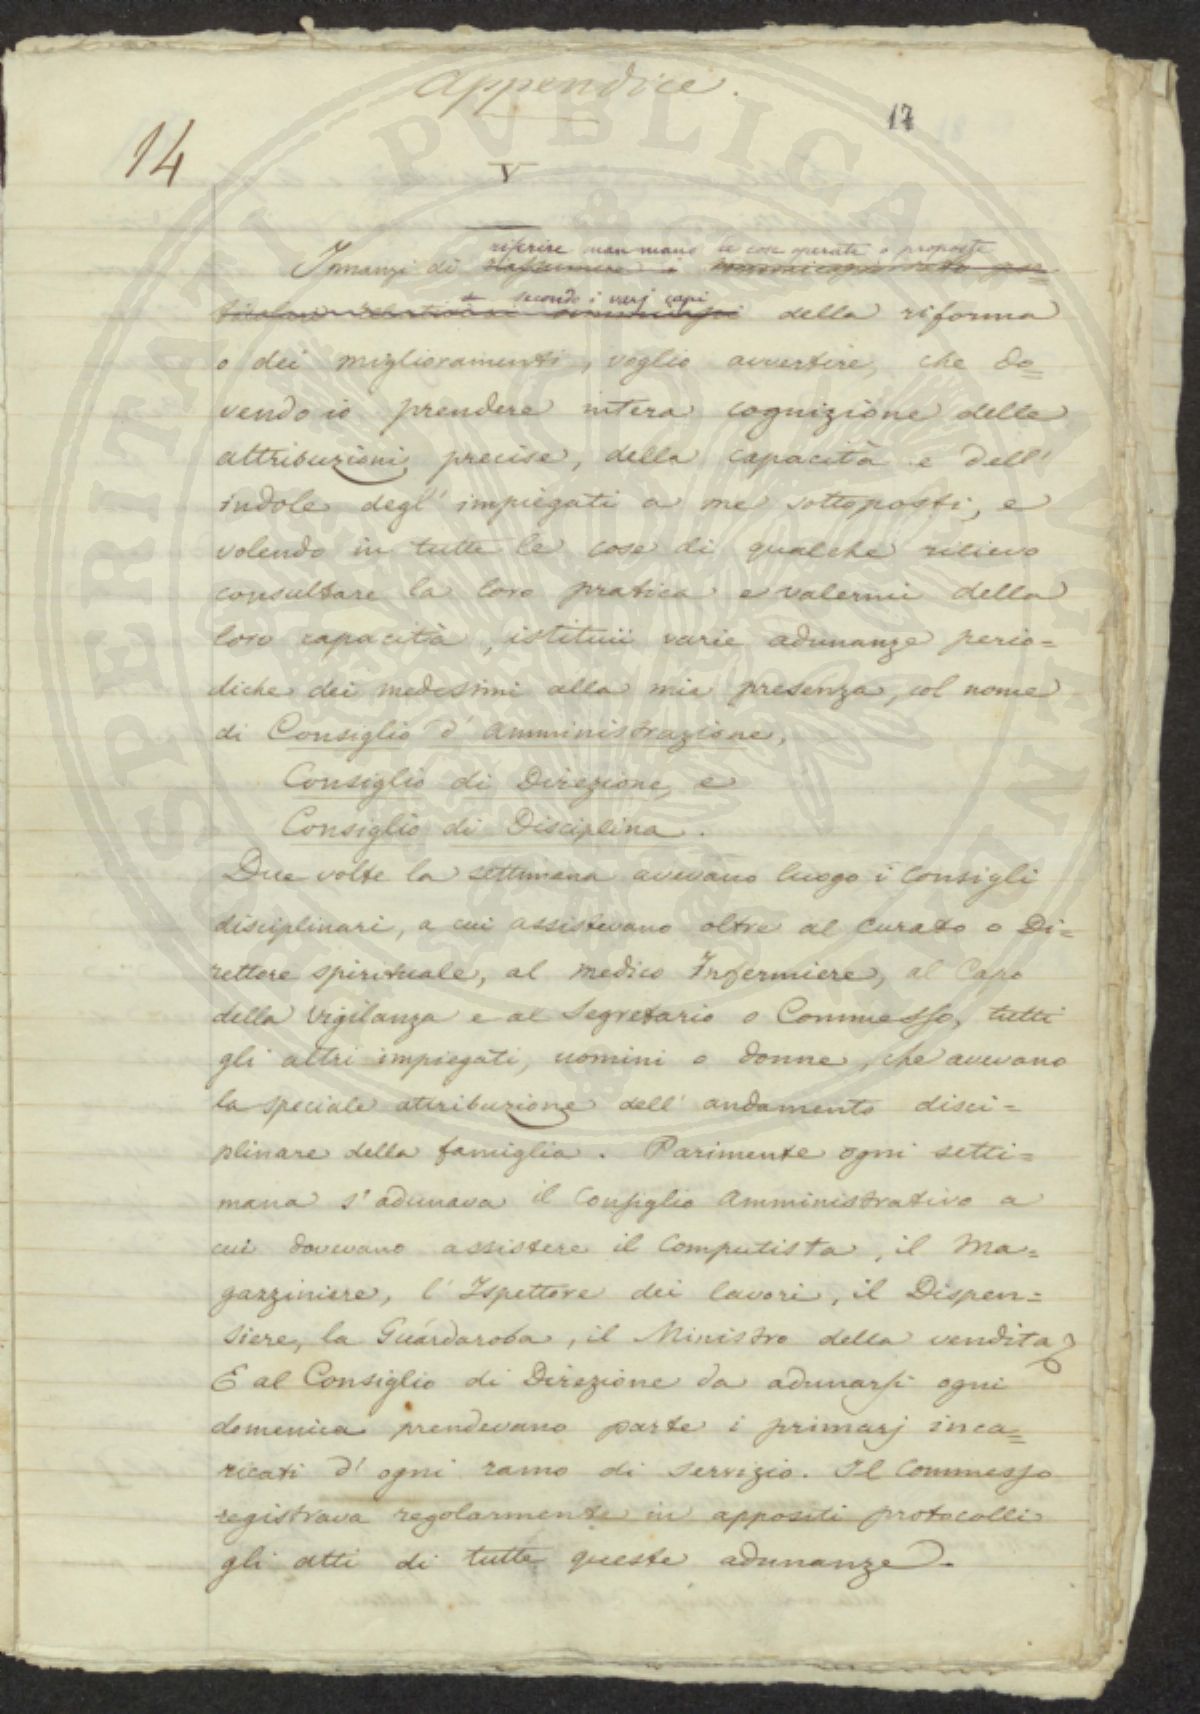 Appendice.
17
14
V
riferire man mano le cose operate o proposte
Innanzi di riassumere i
secondo i varj capi
della riforma
o dei miglioramenti, voglio avvertire, che do=
vendo io prendere intera cognizione delle
attribuzioni precise, della capacità e dell'
indole degl' impiegati a me sottoposti, e
volendo in tutte le cose di qualche rilievo
consultare la loro pratica e valermi della
loro capacità, istituii varie adunanze perio=
diche dei medesimi alla mia presenza, col nome
di Consiglio d' Amministrazione,
Consiglio di Direzione, e
Consiglio di Disciplina.
Due volte la settimana avevano luogo i Consigli
disciplinari, a cui assistevano oltre al Curato o Di=
rettore spirituale, al medico Infermiere, al Capo
della Vigilanza e al Segretario o Commesso, tutti
gli altri impiegati, uomini o donne, che avevano
la speciale attribuzione dell' andamento disci=
plinare della famiglia. Parimente ogni setti=
mana s' adunava il Consiglio Amministrativo a
cui dovevano assistere il Computista, il Ma=
gazziniere, l' Ispettore dei lavori, il Dispen=
siere, la Guardaroba, il Ministro della vendita
E al Consiglio di Direzione da adunarsi ogni
domenica prendevano parte i primarj inca=
ricati d' ogni ramo di servizio. Il Commesso
registrava regolarmente in appositi protocolli
gli atti di tutte queste adunanze.